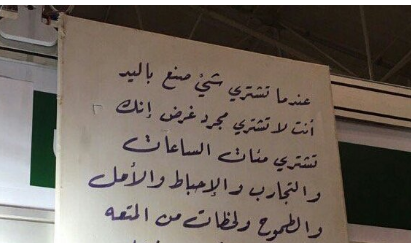 عندما تشتري شيئ صنع باليد
أنت لا تشتري مجرد غرض إنك
تشتري مئات الساعات
والتجارب والإحباط والأمل
والطموح ولحظات من المتعه